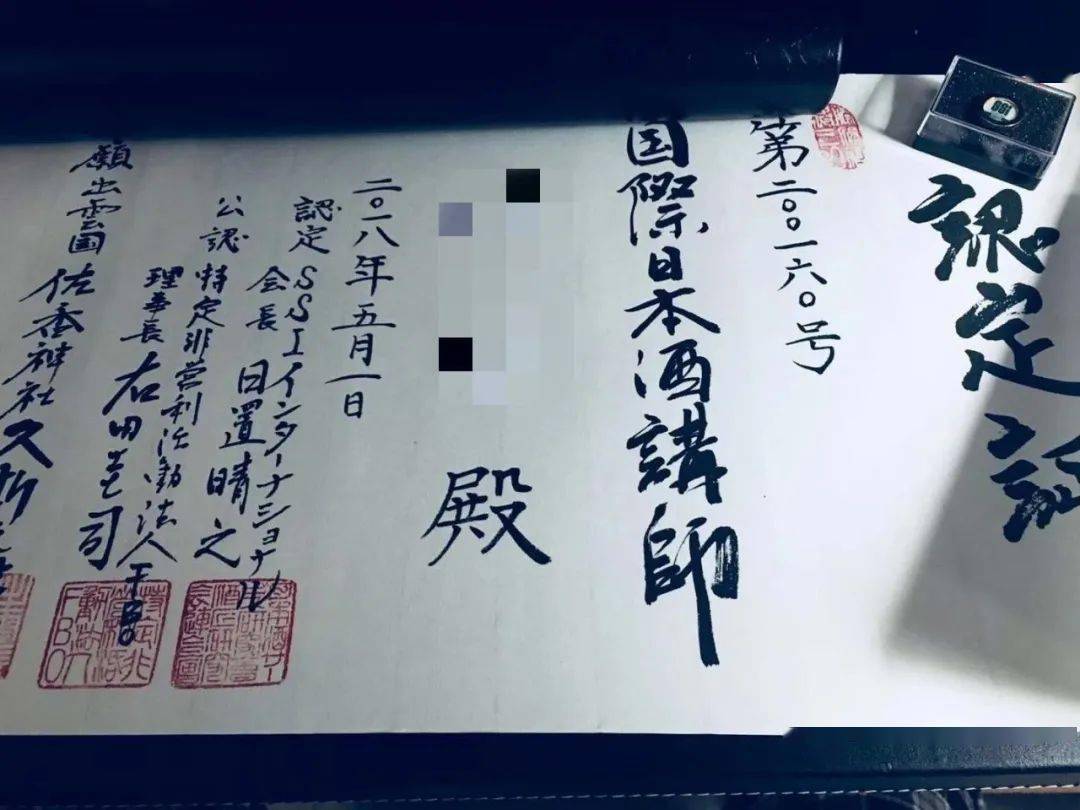 認定証
第二〇一六〇号
国際日本酒講師
殿
二〇一八年五月一日
認定 SSIインターナショナル
会長 日置晴之
公認 特定非営利活動法人FBO
理事長 右田圭司
願出雲国
佐香神社